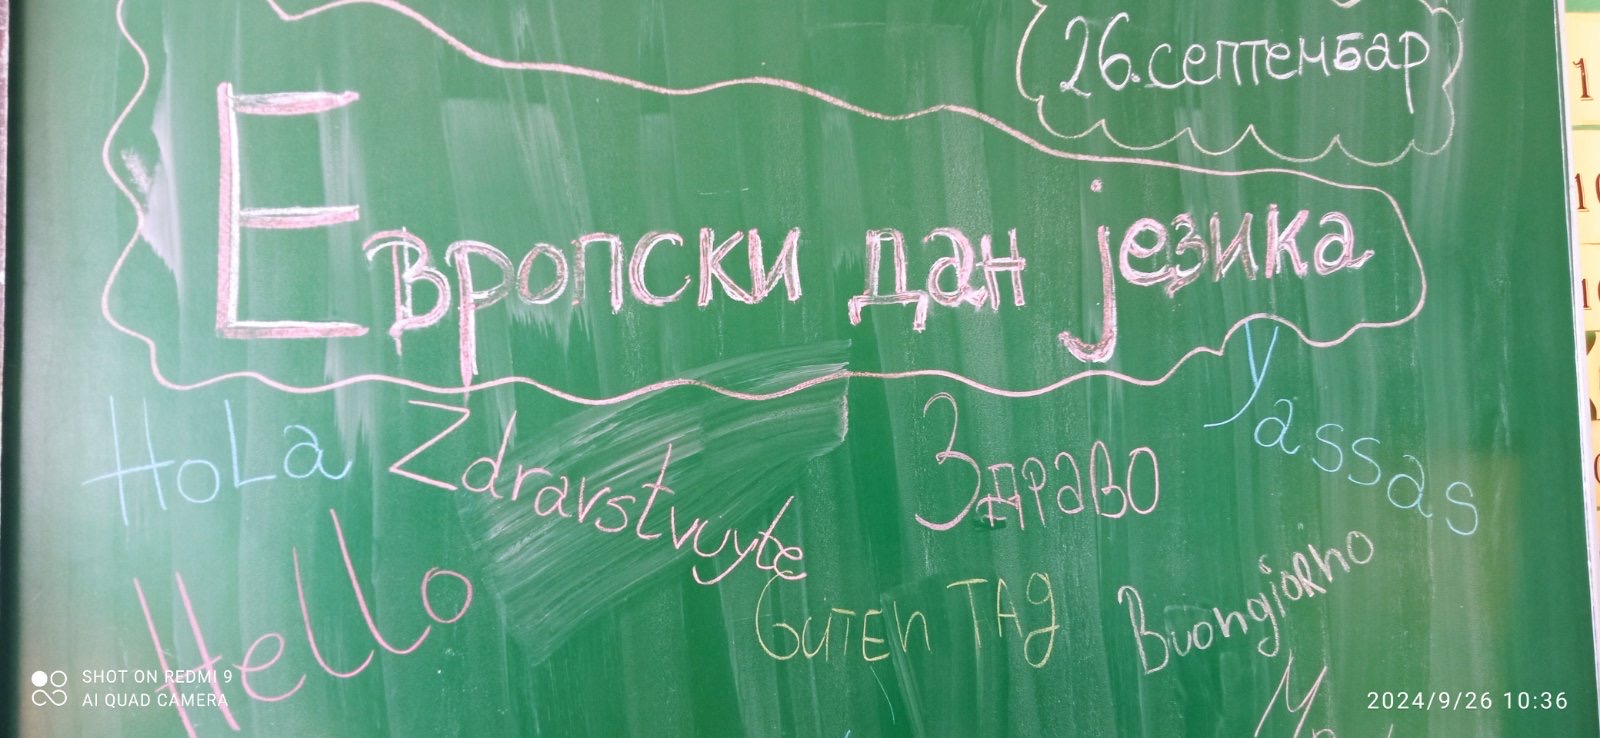 26.септембар
Европски дан језика
HoLa
Zdravstvuyte
Здраво
Yassas
Hello
GuTEn TAg
Buongjorno
SHOT ON REDMI 9
AI QUAD CAMERA
2024/9/26 10:36